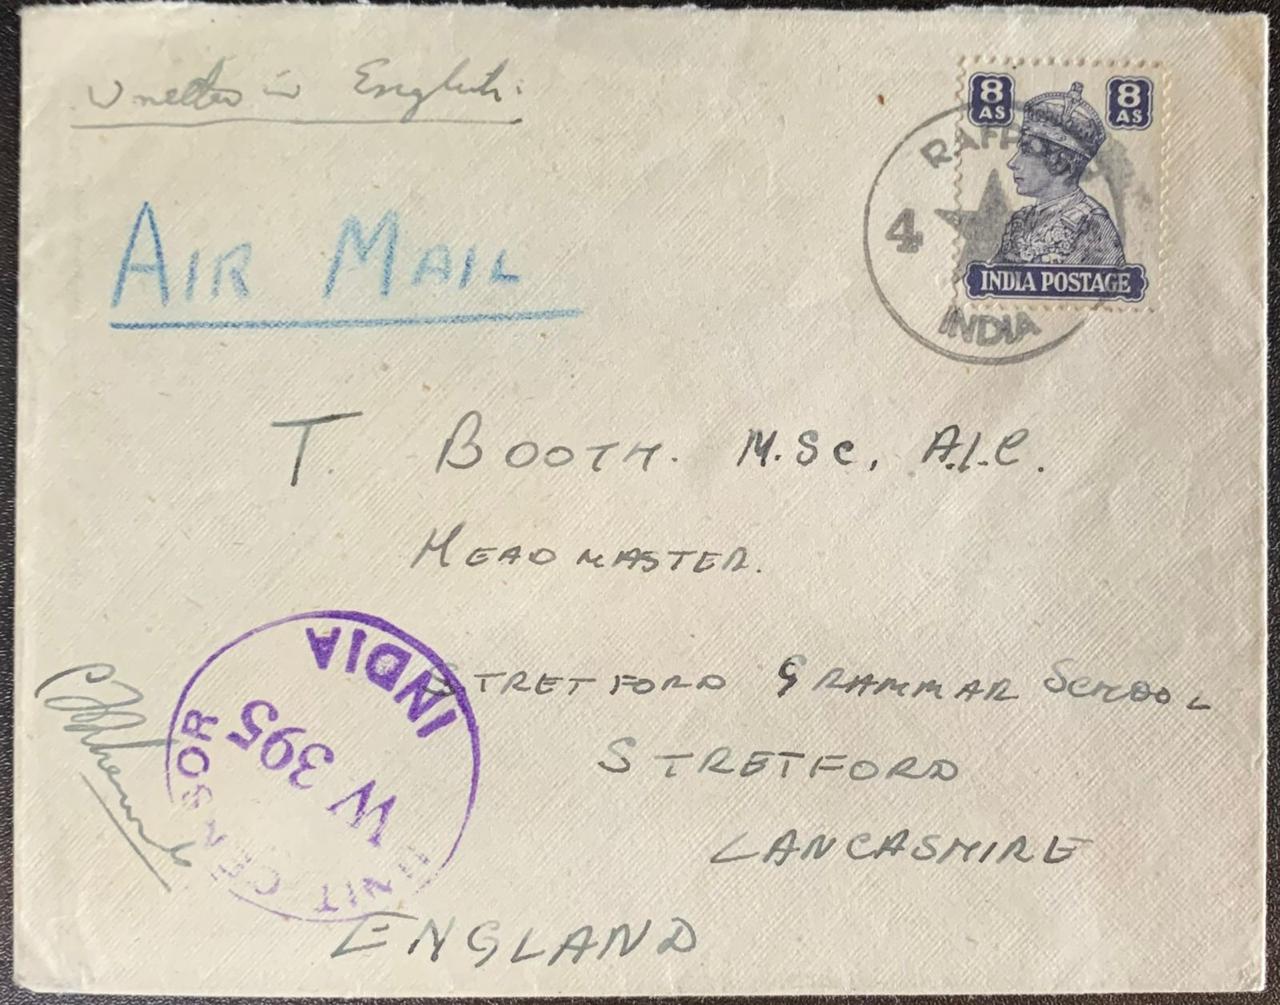 Written in English.
8 AS 8 AS
4 INDIA
INDIA POSTAGE
AIR MAIL
T. BOOTH. M.Sc, A.I.C.
HEADMASTER.
STRETFORD GRAMMAR SCHOOL
STRETFORD
LANCASHIRE
ENGLAND
UNIT CENSOR
W 395
INDIA